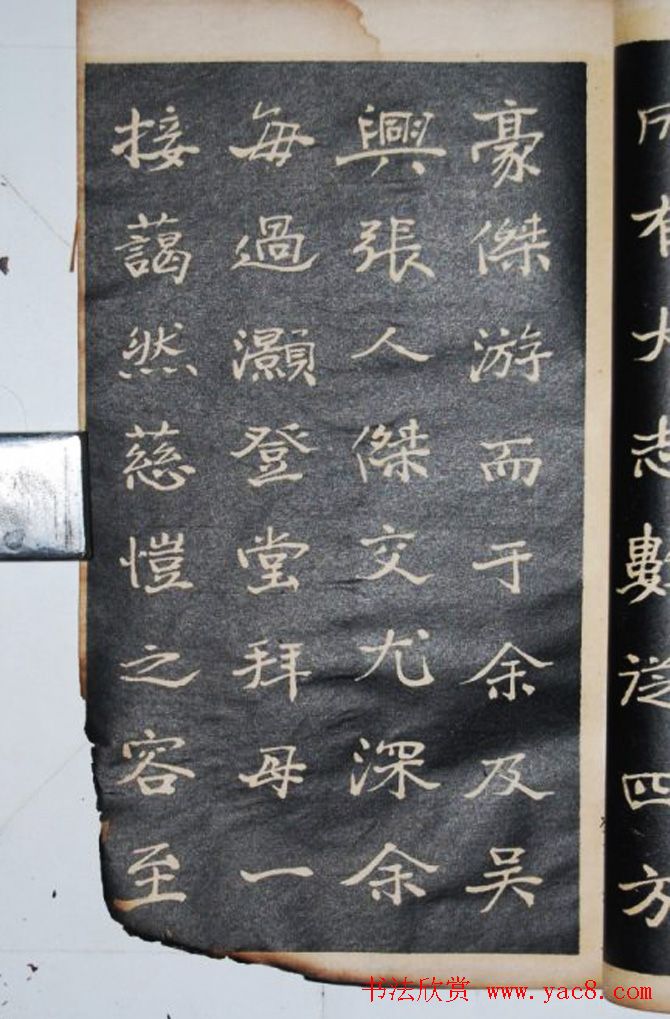 有大志數從四方
豪傑游而于余及吴
興張人傑交尤深余
每過灝登堂拜母一
接藹然慈愷之容至
书法欣赏 www.yac8.com